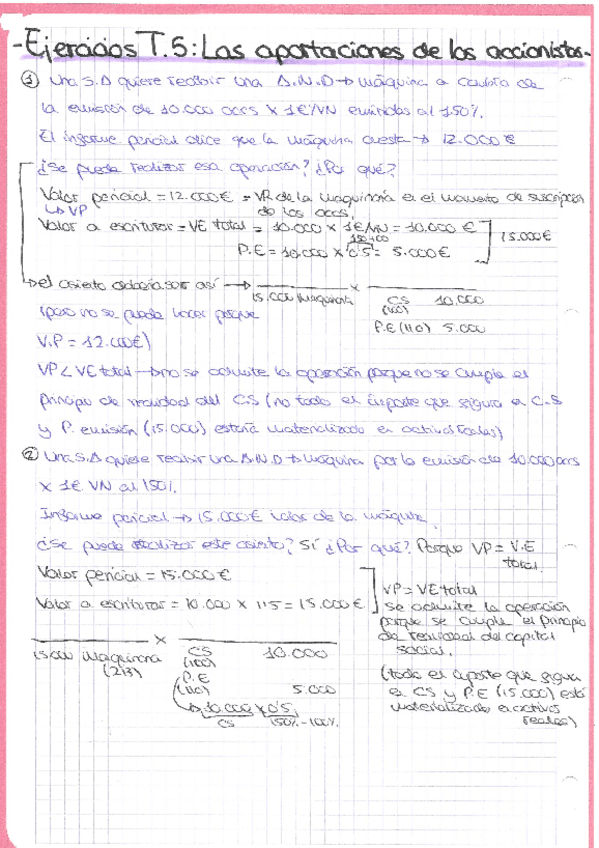 -Ejercicios T.5: Las aportaciones de los accionistas-
① Una S.A quiere recibir una A.N.D → máquina a cambio de
la emisión de 10.000 accs x 1€/VN emitidas al 150%.
El informe pericial dice que la máquina cuesta → 12.000€
¿Se puede realizar esa operación? ¿Por qué?
Valor pericial = 12.000€ = VR de la maquinaria en el momento de suscripción
↳ VP de las accs.
Valor a escriturar = VE total = 10.000 x 1€/VN = 10.000€
150-100
P.E = 10.000 x 0'5 = 5.000€
15.000€
→ el asiento debería ser así →
x
15.000 Maquinaria
CS 10.000
(100)
P.E (110) 5.000
(pero no se puede hacer porque
V.P = 12.000€)
VP < VE total → no se admite la operación porque no se cumple el
principio de realidad del CS (no todo el importe que figura en C.S
y P. emisión (15.000) estaría materializado en activos reales)
② Una S.A quiere recibir una A.N.D → máquina por la emisión de 10.000 accs
x 1€ VN al 150%.
Informe pericial → 15.000€ valor de la máquina.
¿Se puede realizar este asiento? Sí ¿Por qué? Porque VP = V.E
total.
Valor pericial = 15.000€
Valor a escriturar = 10.000 x 1'5 = 15.000€
VP = VE total
se admite la operación
porque se cumple el principio
de realidad del capital
social.
(todo el importe que figura
en CS y P.E (15.000) está
materializado en activos
reales)
x
15.000 Maquinaria
(213)
CS 10.000
(100)
P.E
(110) 5.000
↳ 10.000 x 0'5
CS 150%-100%